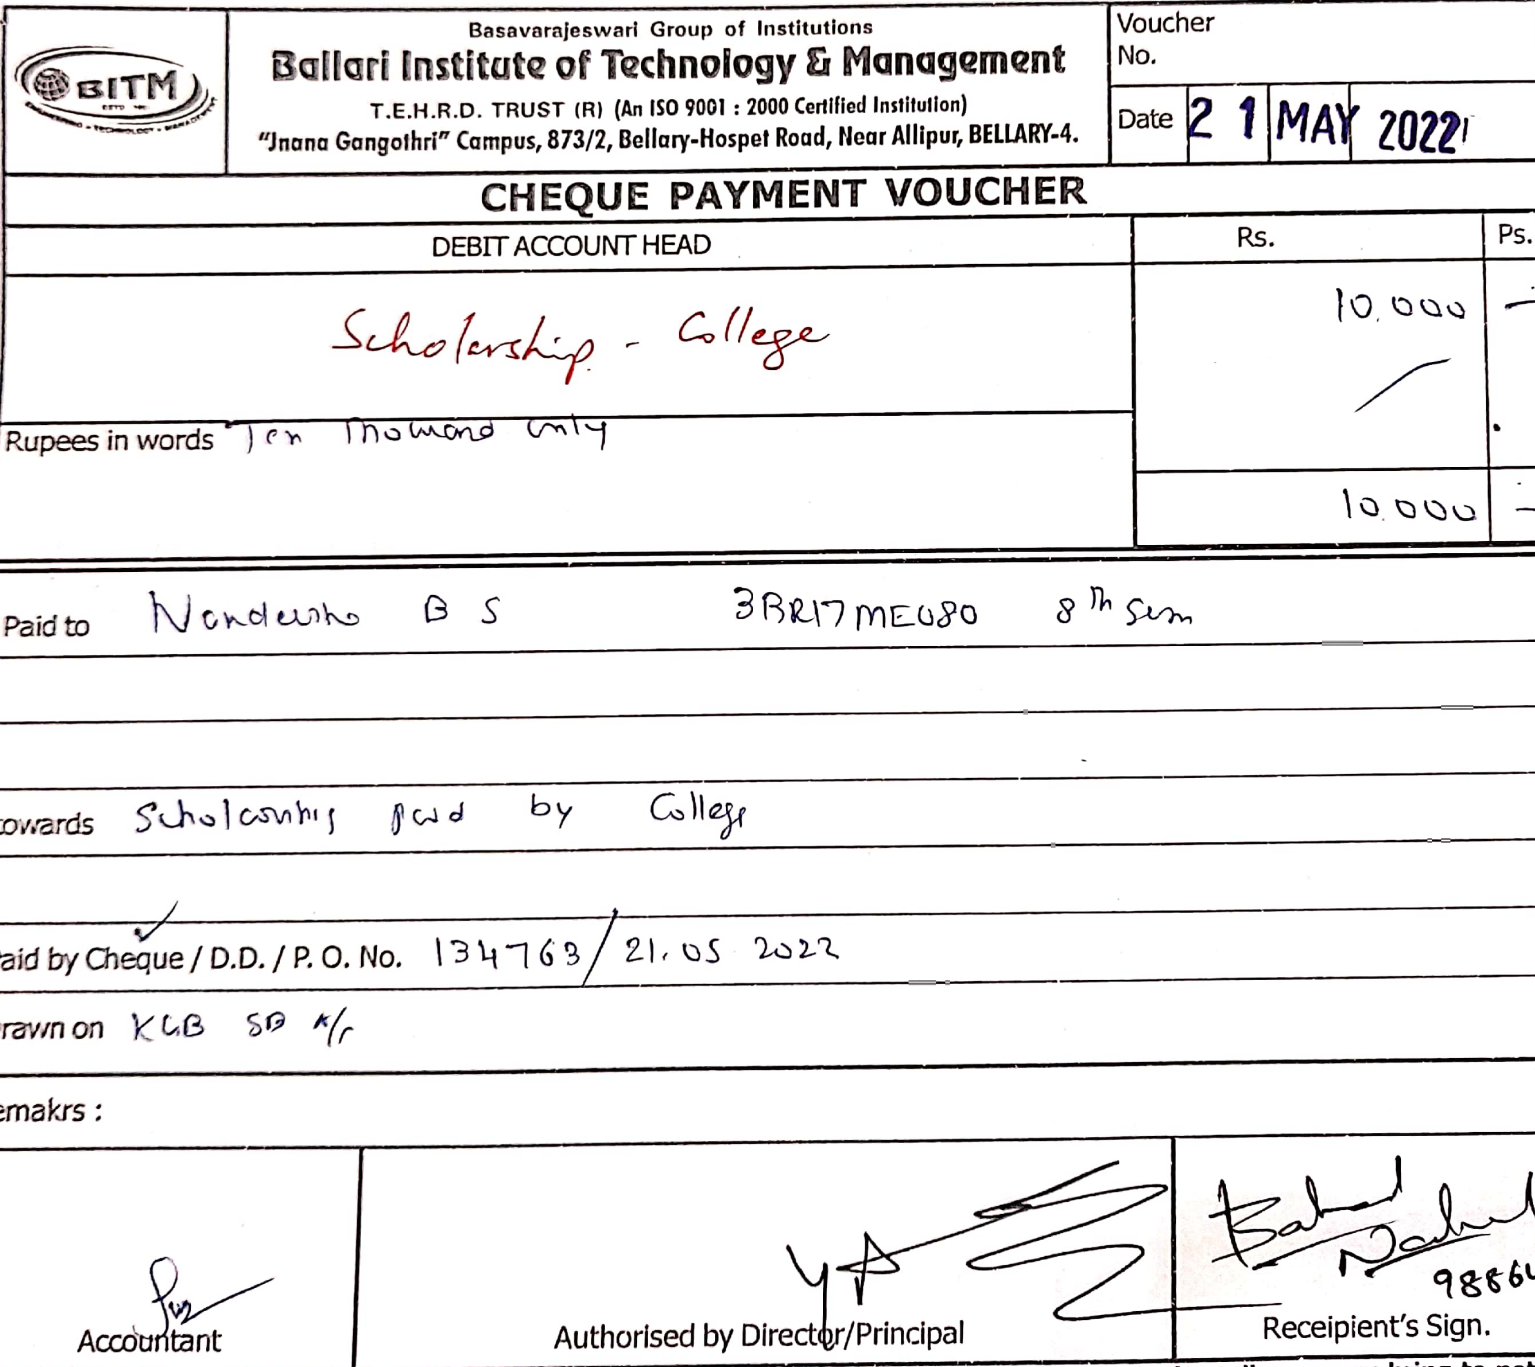 Basavarajeswari Group of Institutions
BITM
Ballari Institute of Technology & Management
T.E.H.R.D. TRUST (R) (An ISO 9001 : 2000 Certified Institution)
"Jnana Gangothri" Campus, 873/2, Bellary-Hospet Road, Near Allipur, BELLARY-4.
Voucher
No.
Date 21 MAY 2022
CHEQUE PAYMENT VOUCHER
DEBIT ACCOUNT HEAD Rs. Ps.
Scholarship - College 10.000 -
Rupees in words Ten Thousand only
10.000 -
Paid to B S 3BR17ME080 8th Sem
owards Scholarship paid by College
aid by Cheque / D.D. / P. O. No. 134763/21.05 2022
rawn on KGB SB A/c
emakrs :
9886
Accountant Authorised by Director/Principal Receipient's Sign.